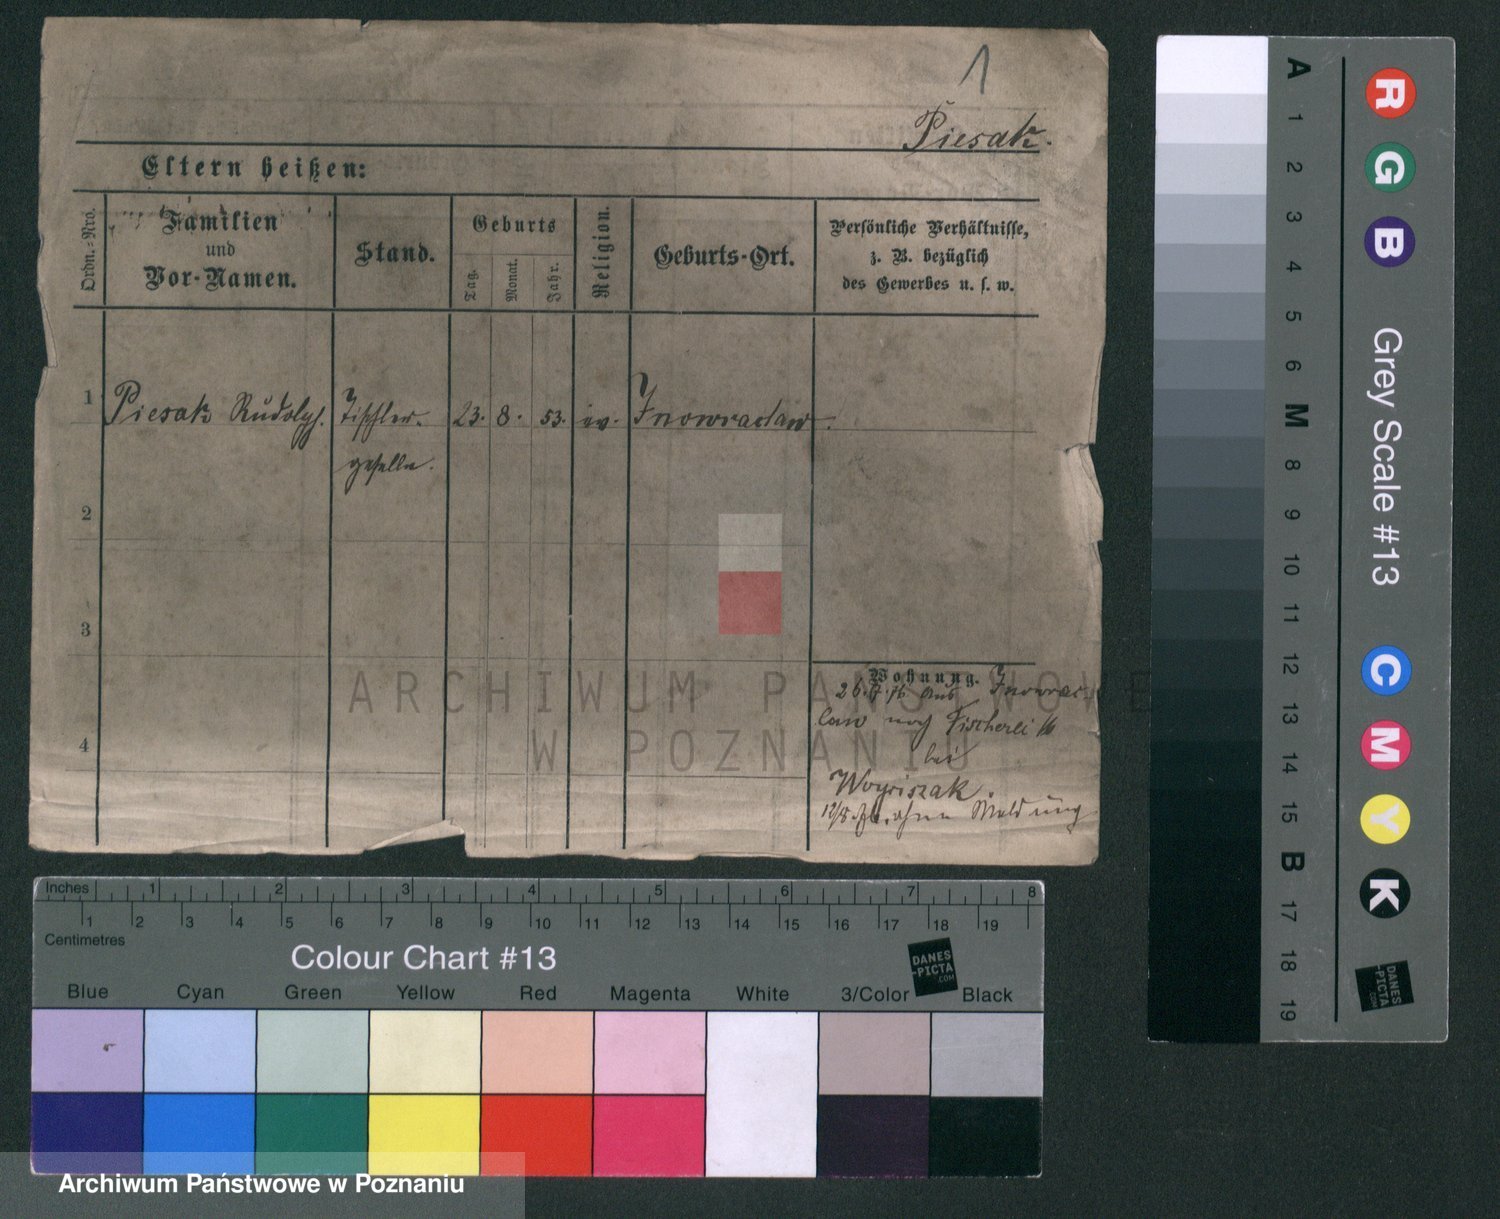 1
Piesak.
Eltern heißen:
Ordn.-Nro.
Familien
und
Vor-Namen.
Stand.
Geburts
Tag.
Monat.
Jahr.
Religion.
Geburts-Ort.
Persönliche Verhältnisse,
z. B. bezüglich
des Gewerbes u. s. w.
1 Piesak Rudolph. Tischler- 23. 8. 53. ev. Inowraclaw.
geselle.
2
3
4
Wohnung.
aus Inowrac
law nach Fischerei
bei
Woyciszak.
ohne Meldung
ARCHIWUM PAŃSTWOWE
W POZNANIU
Inches 1 2 3 4 5 6 7 8
1 2 3 4 5 6 7 8 9 10 11 12 13 14 15 16 17 18 19
Centimetres
Colour Chart #13
DANES
-PICTA
.COM
Blue Cyan Green Yellow Red Magenta White 3/Color Black
Archiwum Państwowe w Poznaniu
A 1 2 3 4 5 6 M 8 9 10 11 12 13 14 15 B 17 18 19
R G B
Grey Scale #13
C M Y K
DANES
-PICTA
.COM